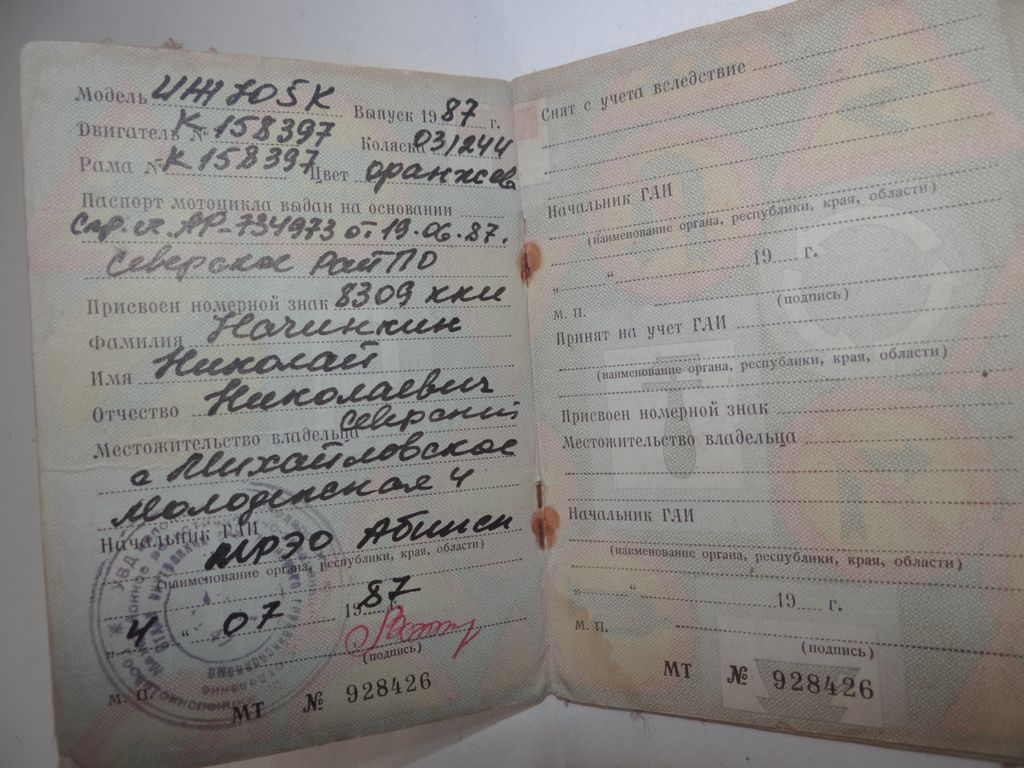 Модель ИЖ 7.105К Выпуск 1987 г.
Двигатель № К 158397 Коляска 031244
Рама № К 158397 Цвет оранжев
Паспорт мотоцикла выдан на основании
Спр. сч. АР-734973 от 19.06.87.
Северское райПО
Присвоен номерной знак 8309 ккн
Фамилия Начинкин
Имя Николай
Отчество Николаевич
Местожительство владельца Северский
с Михайловское
Молодежная 4
Начальник ГАИ
МРЭО Абинск
(наименование органа, республики, края, области)
„ 4 “ 07 1987 г.
(подпись)
М. П.
МТ № 928426
Снят с учета вследствие
Начальник ГАИ
(наименование органа, республики, края, области)
„ “ 19 г.
(подпись)
М. П.
Принят на учет ГАИ
(наименование органа, республики, края, области)
Присвоен номерной знак
Местожительство владельца
Начальник ГАИ
(наименование органа, республики, края, области)
„ “ 19 г.
М. П.
(подпись)
МТ № 928426